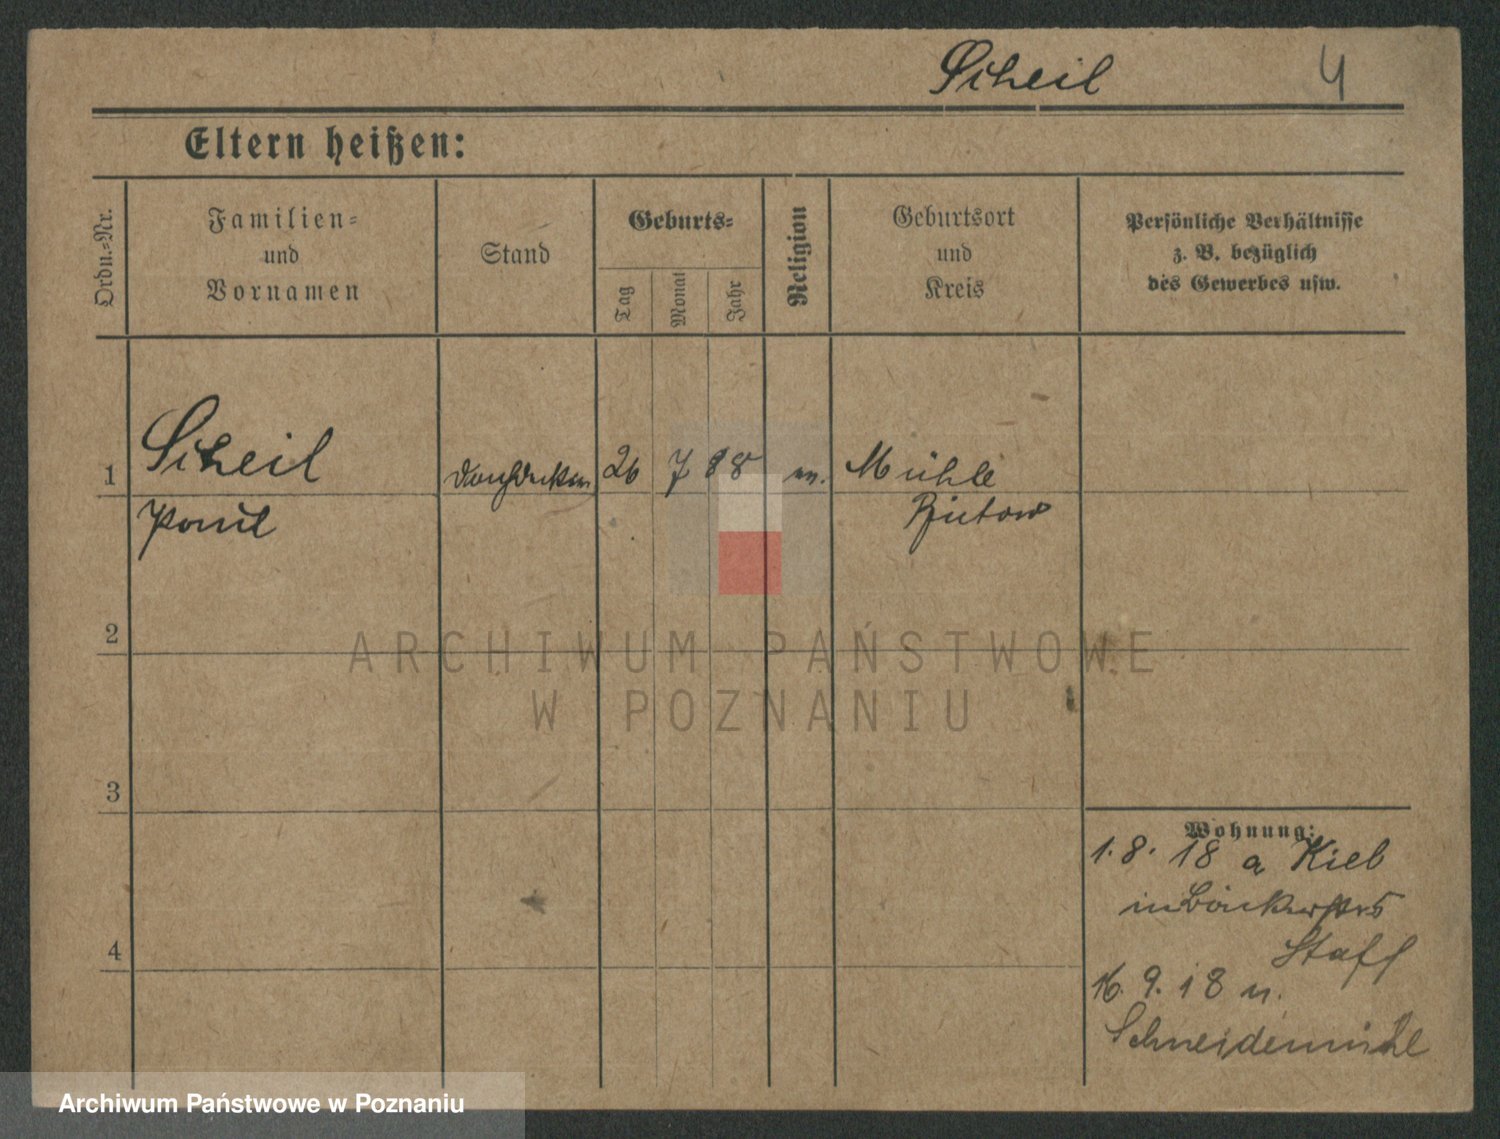 Scheil 4
Eltern heißen:
Ordn.-Nr.
Familien-
und
Vornamen
Stand
Geburts-
Tag
Monat
Jahr
Religion
Geburtsort
und
Kreis
Persönliche Verhältnisse
z. B. bezüglich
des Gewerbes usw.
1 Scheil Dachdecker 26 7 88 ev. Mühle
Paul Bütow
2
3
4
Wohnung:
1. 8. 18 a Kiel
16. 9. 18 n.
Schneidemühl
ARCHIWUM PAŃSTWOWE
W POZNANIU
Archiwum Państwowe w Poznaniu